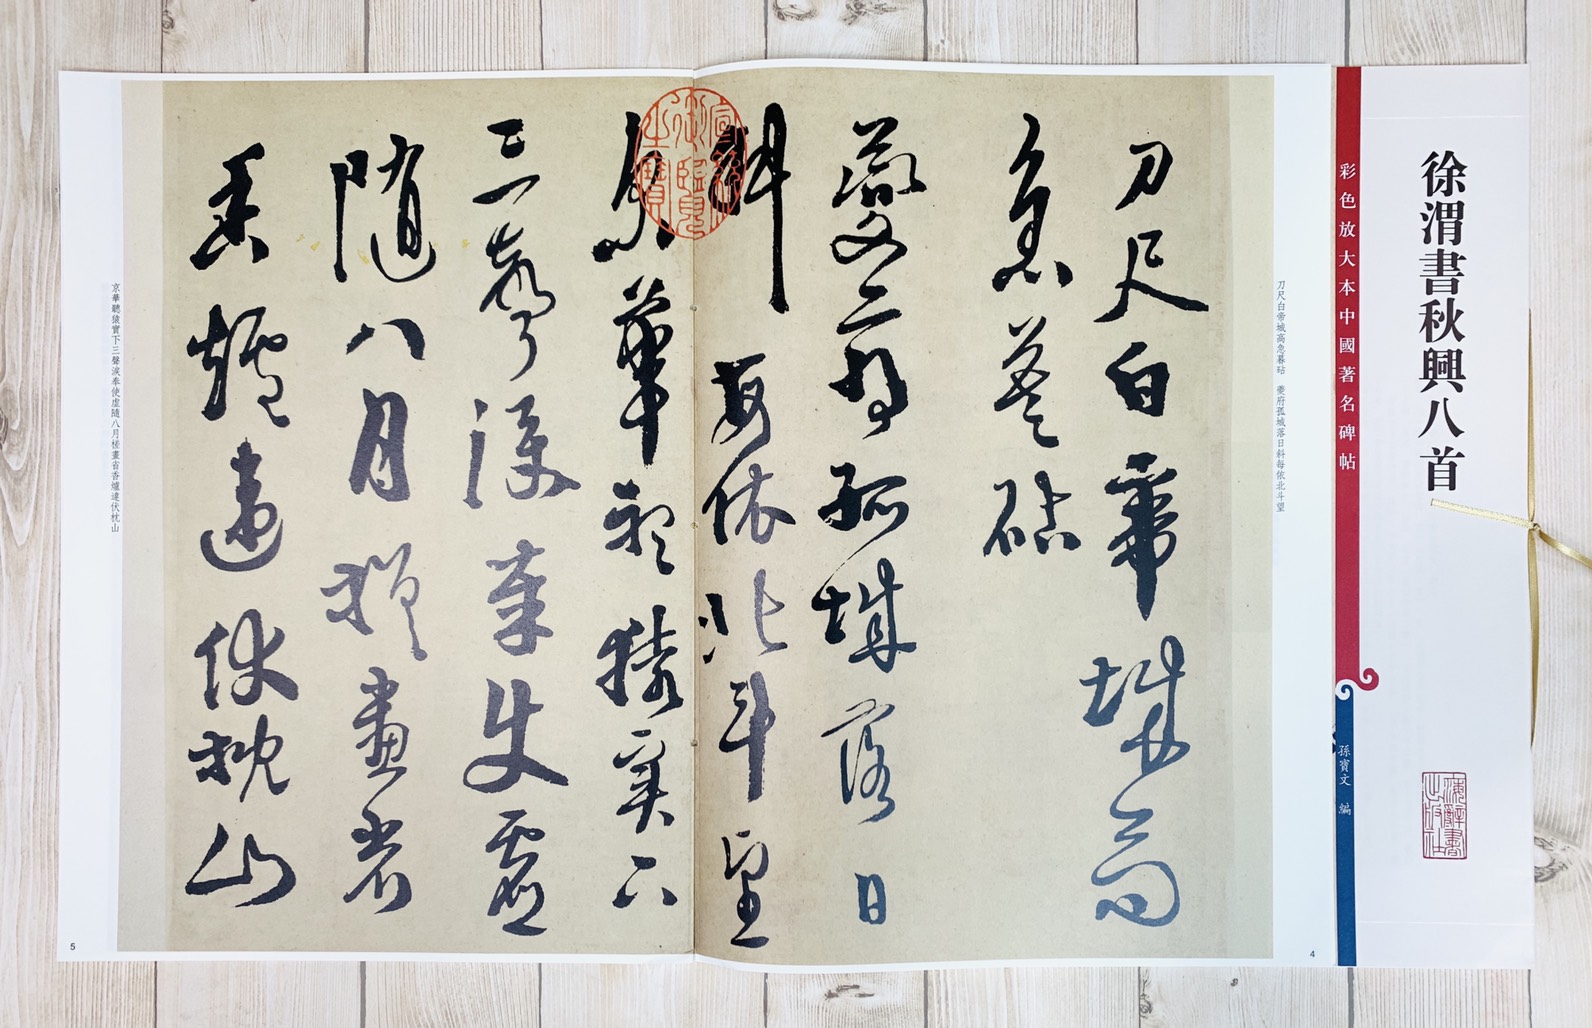 徐渭書秋興八首
彩色放大本中國著名碑帖
孫寶文 編
海辭書出版社
刀尺白帝城高
急暮砧
夔府孤城落日
斜 每依北斗望
京華聽猿實下
三聲淚奉使虛
隨八月槎畫省
香爐違伏枕山
刀尺白帝城高急暮砧 夔府孤城落日斜每依北斗望
京華聽猿實下三聲淚奉使虛隨八月槎畫省香爐違伏枕山
4
5